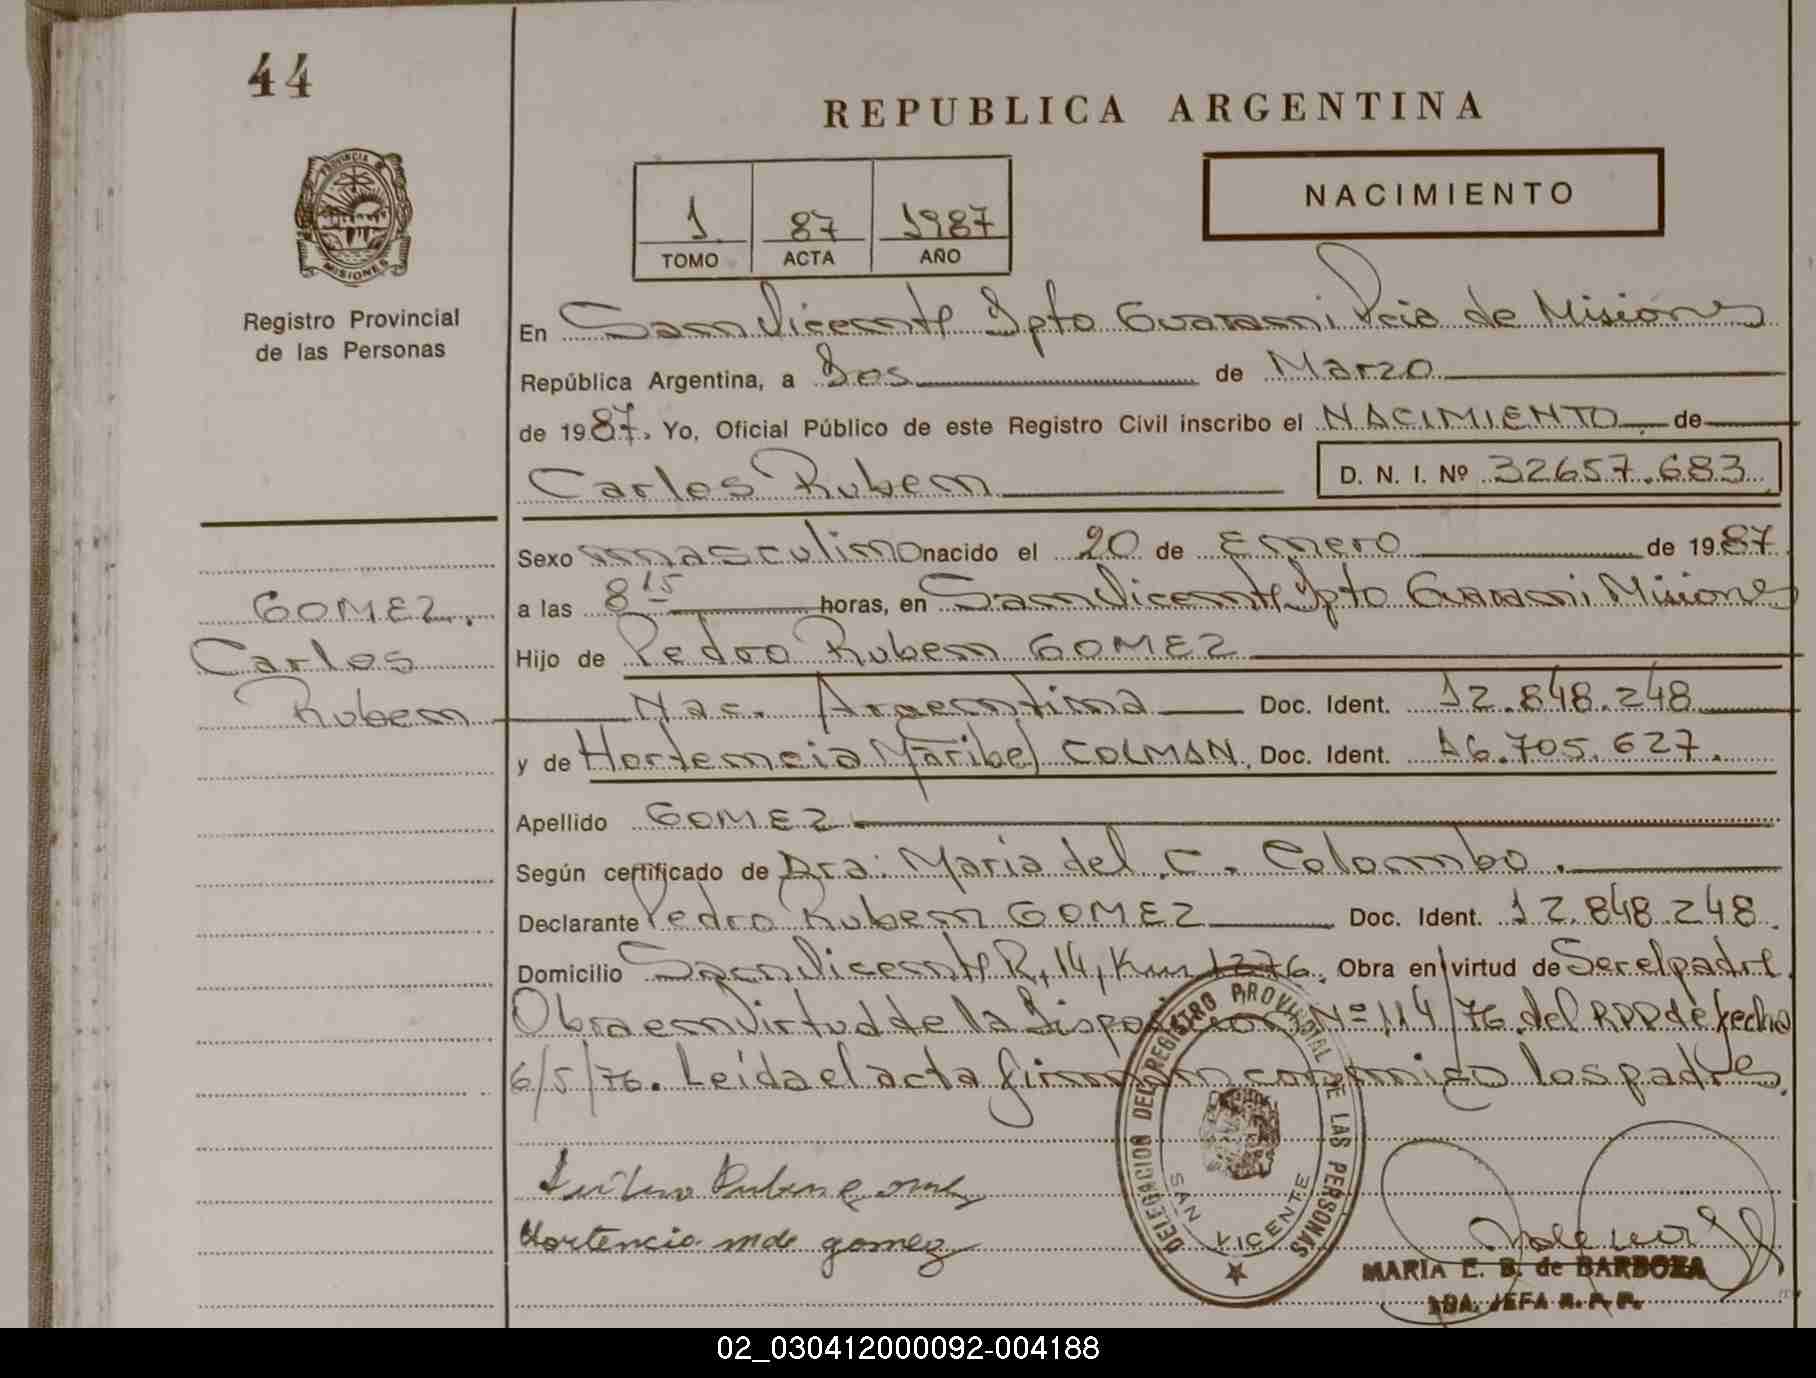 44
REPUBLICA ARGENTINA
PROVINCIA DE
MISIONES
Registro Provincial
de las Personas
1 87 1987
TOMO ACTA AÑO
NACIMIENTO
En San Vicente Dpto Guarani Pcia de Misiones
República Argentina, a Dos de Marzo
de 1987. Yo, Oficial Público de este Registro Civil inscribo el NACIMIENTO de
Carlos Ruben D. N. I. Nº 32657.683
Sexo masculino nacido el 20 de Enero de 1987
a las 8 15 horas, en San Vicente Dpto Guarani, Misiones
Hijo de Pedro Ruben GOMEZ
Nac. Argentina Doc. Ident. 12.848.248
y de Hortencia Maribel COLMAN, Doc. Ident. 16.705.627.
Apellido GOMEZ
Según certificado de Dra: Maria del C. Colombo.
Declarante Pedro Ruben GOMEZ Doc. Ident. 12.848.248.
Domicilio San Vicente R, 14, Km 1276. Obra en virtud de Ser el padre.
Obra en Virtud de la Disposicion Nº 114/76 del RPP de fecha
6/5/76. Leida el acta firman conmigo los padres.
GOMEZ,
Carlos
Ruben
Ruben Gomez
Hortencia m de gomez
DELEGACION DEL REGISTRO PROVINCIAL DE LAS PERSONAS
SAN VICENTE
MARIA E. B. de BARBOZA
JEFA R. P. P.
02_030412000092-004188